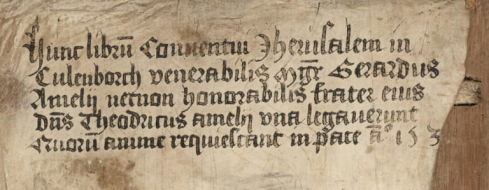 Hunc librū Conuentui Iherusalem in
Culenborch venerabilis mgr̄ Gerardus
Amelij necnon honorabilis frater eius
dn̄s Theodricus amelij vna legauerunt
Quorū anime requiescant in pace aº 153